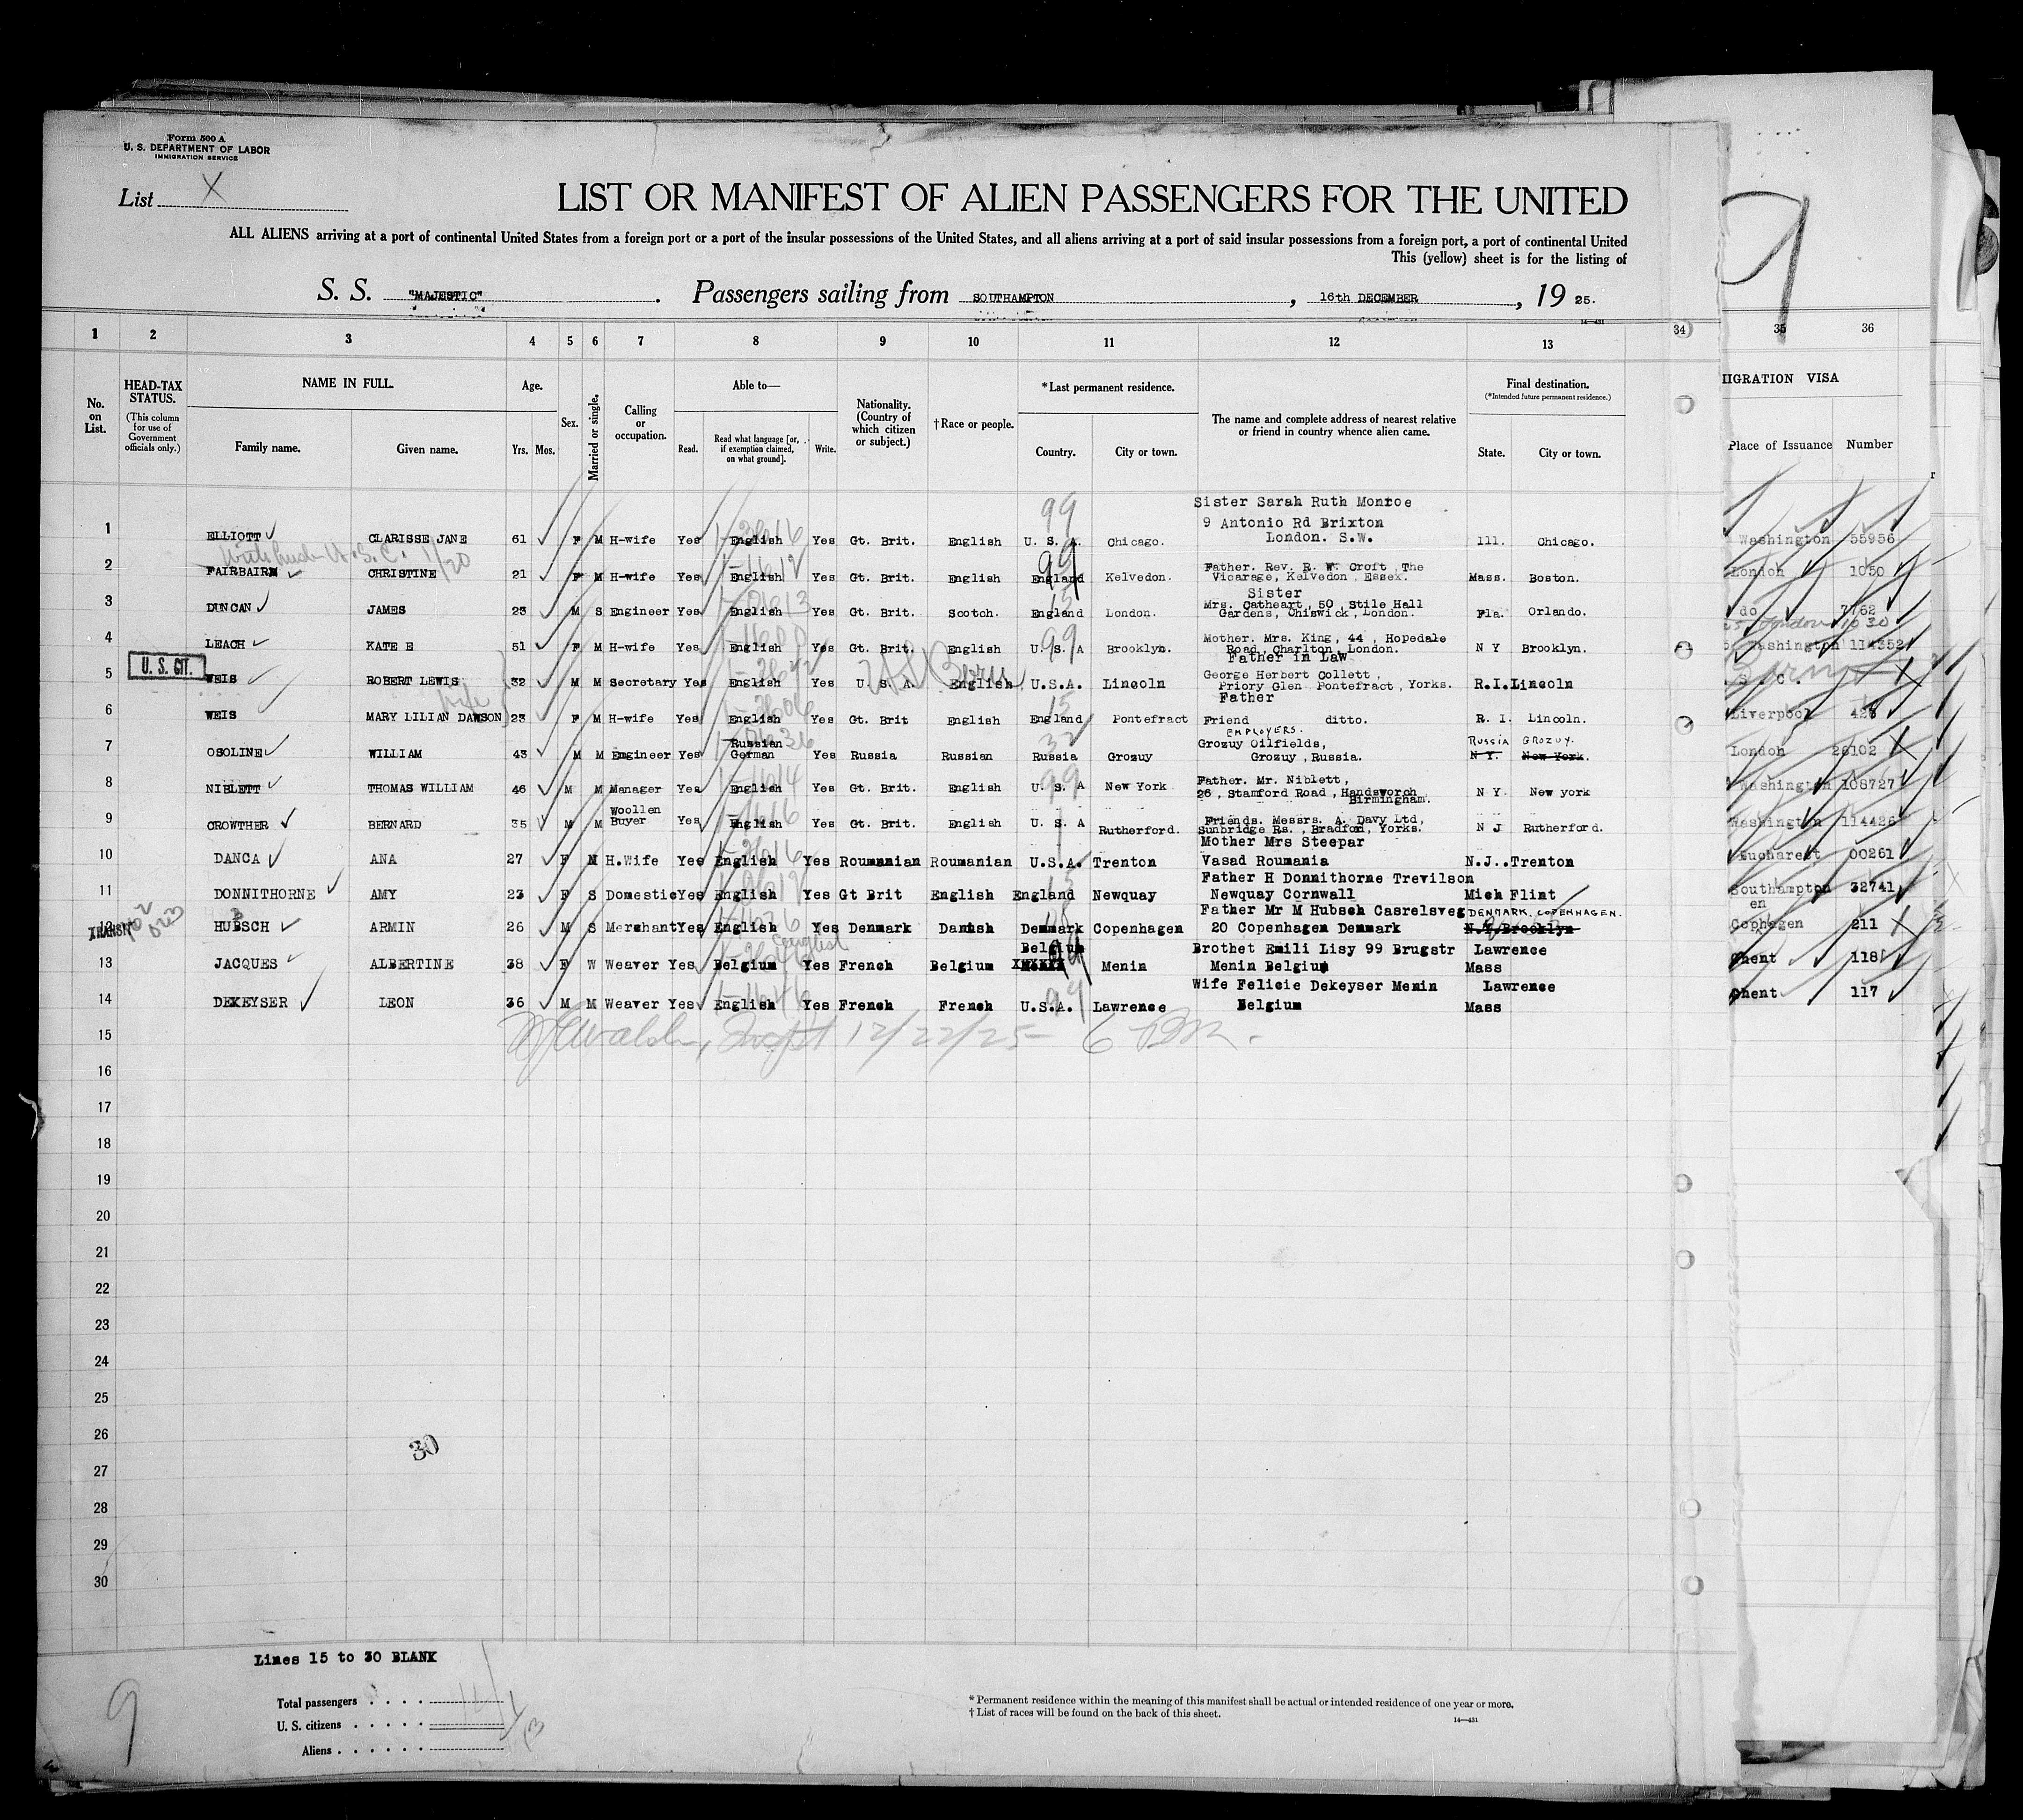 Form 500 A
U. S. DEPARTMENT OF LABOR
IMMIGRATION SERVICE
List X
LIST OR MANIFEST OF ALIEN PASSENGERS FOR THE UNITED
ALL ALIENS arriving at a port of continental United States from a foreign port or a port of the insular possessions of the United States, and all aliens arriving at a port of said insular possessions from a foreign port, a port of continental United
This (yellow) sheet is for the listing of
S. S. "MAJESTIC". Passengers sailing from SOUTHAMPTON, 16th DECEMBER, 19 25.
14—431
1 2 3 4 5 6 7 8 9 10 11 12 13 34 35 36
No. on List.
HEAD-TAX STATUS.
(This column for use of Government officials only.)
NAME IN FULL.
Family name. Given name.
Age.
Yrs. Mos.
Sex.
Married or single.
Calling or occupation.
Able to—
Read. Read what language [or, if exemption claimed, on what ground]. Write.
Nationality. (Country of which citizen or subject.)
†Race or people.
*Last permanent residence.
Country. City or town.
The name and complete address of nearest relative or friend in country whence alien came.
Final destination.
(*Intended future permanent residence.)
State. City or town.
IIGRATION VISA
Place of Issuance Number
9
Sister Sarah Ruth Monroe
9 Antonio Rd Brixton
London. S.W.
1 ELLIOTT CLARISSE JANE 61 F M H-wife Yes English Yes Gt. Brit. English U. S. A. Chicago. Ill. Chicago. Washington 55956
99
2 FAIRBAIRN CHRISTINE 21 F M H-wife Yes English Yes Gt. Brit. English England Kelvedon. Father. Rev. R. W. Croft, The Mass. Boston. London 1050
Vicarage, Kelvedon, Essex.
99
Sister
3 DUNCAN JAMES 23 M S Engineer Yes English Yes Gt. Brit. Scotch. England London. Mrs. Cathcart, 50, Stile Hall Fla. Orlando. do 7762
Gardens, Chiswick, London.
London 1030
4 LEACH KATE E 51 F M H-wife Yes English Yes Gt. Brit. English U. S. A Brooklyn. Mother. Mrs. King, 44, Hopedale N Y Brooklyn. Washington 114352
Road, Charlton, London.
99
Father in Law
U. S. CIT.
5 WEIS ROBERT LEWIS 32 M M Secretary Yes English Yes U. S. A. English U.S.A. Lincoln George Herbert Collett, R.I. Lincoln S. C.
Priory Glen Pontefract, Yorks.
Born
wife
Father
6 WEIS MARY LILIAN DAWSON 23 F M H-wife Yes English Yes Gt. Brit English England Pontefract Friend ditto. R. I. Lincoln. Liverpool 428
15
EMPLOYERS.
7 OSOLINE WILLIAM 43 M M Engineer Yes Russian German Yes Russia Russian Russia Grozuy Grozuy Oilfields, RUSSIA GROZUY. London 26102
Grozuy, Russia. N Y. New York.
32
8 NIBLETT THOMAS WILLIAM 46 M M Manager Yes English Yes Gt. Brit. English U. S. A New York Father. Mr. Niblett, N Y. New york Washington 108727
26, Stamford Road, Handsworch
Birmingham.
99
9 CROWTHER BERNARD 35 M M Woollen Buyer Yes English Yes Gt. Brit. English U. S. A Rutherford. Friends. Messrs. A. Davy Ltd, N J Rutherford. Washington 114426
Sunbridge Rs., Bradford, Yorks.
Mother Mrs Steepar
10 DANCA ANA 27 F M H.Wife Yes English Yes Roumanian Roumanian U.S.A. Trenton Vasad Roumania N.J.. Trenton Bucharest 00261
Father H Donnithorne Trevilson
11 DONNITHORNE AMY 23 F S Domestic Yes English Yes Gt Brit English England Newquay Newquay Cornwall Mich Flint Southampton 32741
Father Mr M Hubsch Casrelsveg DENMARK. COPENHAGEN.
en
TRANSIT
12 HUBSCH ARMIN 26 M S Merchant Yes English Yes Denmark Danish Denmark Copenhagen 20 Copenhagen Denmark N.Y. Brooklyn Cophagen 211
English
13 JACQUES ALBERTINE 38 F W Weaver Yes Belgium Yes French Belgium Belgium Menin Brothet Emili Lisy 99 Brugstr Lawrence Ghent 118
Menin Belgium Mass
Wife Felicie Dekeyser Menin Lawrence
14 DEKEYSER LEON 36 M M Weaver Yes English Yes French French U.S.A. Lawrence Belgium Mass Ghent 117
99
15 Walsh, Inspt 12/22/25 6 PM.
16
17
18
19
20
21
22
23
24
25
26
30
27
28
29
30
Lines 15 to 30 BLANK
9
Total passengers . . . . 14
U. S. citizens . . . . . 1
Aliens . . . . . . 13
* Permanent residence within the meaning of this manifest shall be actual or intended residence of one year or more.
† List of races will be found on the back of this sheet.
14—431